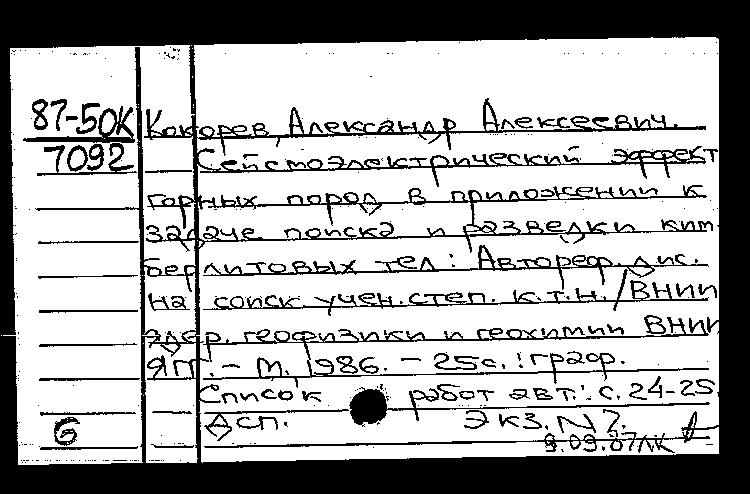 87-50К Кокорев, Александр Алексеевич.
7092 Сейсмоэлектрический эффект
горных пород в приложении к
задаче поиска и разведки ким-
берлитовых тел: Автореф. дис.
на соиск. учен. степ. к.т.н. / ВНИИ
ядер. геофизики и геохимии ВНИИ
ЯГГ. - М., 1986. - 25с.: граф.
Список работ авт.: с. 24-25.
Дсп. Экз. N 7.
6 9.09.87 ЛК